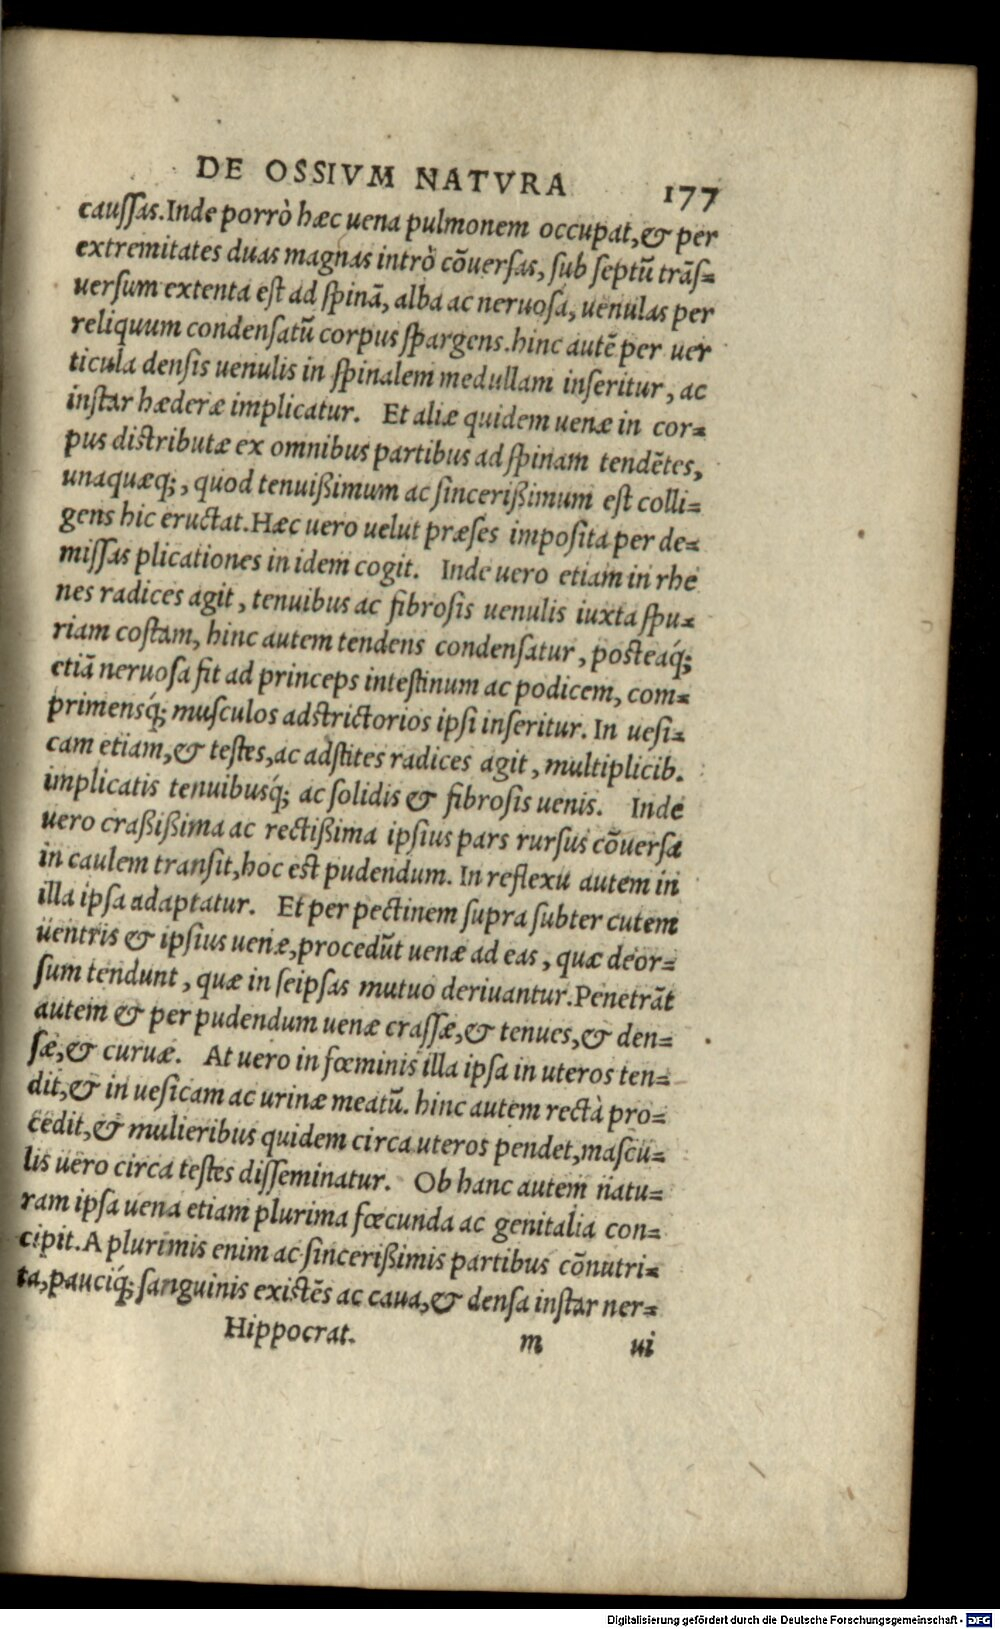 DE OSSIVM NATVRA 177
caussas. Inde porrò hæc uena pulmonem occupat, & per
extremitates duas magnas intrò cōuersas, sub septū trās=
uersum extenta est ad spinā, alba ac neruosa, uenulas per
reliquum condensatū corpus spargens. hinc autē per uer
ticula densis uenulis in spinalem medullam inseritur, ac
instar hæderæ implicatur. Et aliæ quidem uenæ in cor=
pus distributæ ex omnibus partibus ad spinam tendētes,
unaquæq;, quod tenuißimum ac sincerißimum est colli=
gens hic eructat. Hæc uero uelut præses imposita per de=
missas plicationes in idem cogit. Inde uero etiam in rhe
nes radices agit, tenuibus ac fibrosis uenulis iuxta spu=
riam costam, hinc autem tendens condensatur, posteaq́;
etiā neruosa fit ad princeps intestinum ac podicem, com=
primensq́; musculos adstrictorios ipsi inseritur. In uesi=
cam etiam, & testes, ac adstites radices agit, multiplicib.
implicatis tenuibusq́; ac solidis & fibrosis uenis. Inde
uero craßißima ac rectißima ipsius pars rursus cōuersa
in caulem transit, hoc est pudendum. In reflexu autem in
illa ipsa adaptatur. Et per pectinem supra subter cutem
uentris & ipsius uenæ, procedūt uenæ ad eas, quæ deor=
sum tendunt, quæ in seipsas mutuo deriuantur. Penetrāt
autem & per pudendum uenæ crassæ, & tenues, & den=
sæ, & curuæ. At uero in fœminis illa ipsa in uteros ten=
dit, & in uesicam ac urinæ meatū. hinc autem rectà pro=
cedit, & mulieribus quidem circa uteros pendet, mascu=
lis uero circa testes disseminatur. Ob hanc autem natu=
ram ipsa uena etiam plurima fœcunda ac genitalia con=
cipit. A plurimis enim ac sincerißimis partibus cōnutri=
ta, pauciq́; sanguinis existēs ac caua, & densa instar ner=
Hippocrat. m ui
Digitalisierung gefördert durch die Deutsche Forschungsgemeinschaft - DFG